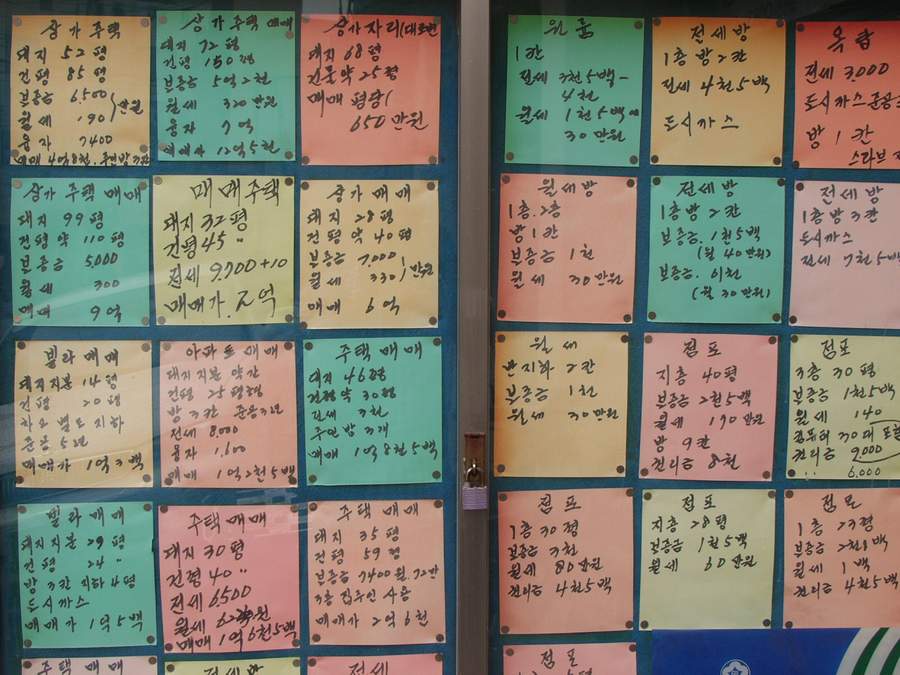 상가주택
대지 52평
건평 85평
보증금 6,500
월세 190 만원
융자 7400
매매 4억8천. 주인방 3칸
상가주택 매매
대지 72평
건평 150평
보증금 5억2천
월세 320만원
융자 7억
12억5천
상가자리(대로변
대지 68평
건물약 25평
매매 평당/
650만원
상가 주택 매매
대지 99평
건평 약 110평
보증금 5,000
월세 300
매매 9억
매매주택
대지 32평
건평 45 〃
전세 9,700+10
매매가. 2억
상가 매매
대지 28평
건평 약 40평
보증금 7,000
월세 330 만원
매매 6억
빌라 매매
대지지분 14평
건평 20평
차고 별도 지하
준공 5년
매매가 1억3백
아파트매매
대지지분 약간
건평 25평형
방 3칸 준공3년
전세 8,000
융자 1,600
매매 1억2천5백
주택 매매
대지 46평
건평약 30평
전세 3천
주인방 3개
매매 1억8천5백
빌라 매매
대지지분 29평
건평 24 〃
방 3칸 지하 4평
도시까스
매매가 1억5백
주택매매
대지 30평
건평 40 〃
전세 6500
월세
매매 1억6천5백
주택 매매
대지 35평
건평 59평
보증금 7400월.72만
3층 집주인 사용
매매가 2억6천
주택 매매
전세방
전세
원룸
1칸
전세 3천5백-
4천
월세 1천5백에
30만원
전세방
1층 방 2칸
전세 4천5백
도시까스
옥탑
전세 3000
도시까스준공
방 1칸
스라브
월세방
1층. 2층
방 1칸
보증금 1천
월세 30만원
전세방
1층방 2칸
보증금. 1천5백
(월 40만원)
보증금. 이천
(월 30만원)
전세방
1층방 3칸
도시까스
전세 7천5백
월세
반지하 2칸
보증금 1천
월세 30만원
점포
지층 40평
보증금 2천5백
월세 190만원
방 9칸
권리금 8천
점포
3층 30평
보증금 1천5백
월세 140
컴퓨터 30대 포함
권리금 9,000
〃 6,000
점포
1층 30평
보증금 3천
월세 80만원
권리금 4천5백
점포
지층 28평
보증금 1천5백
월세 60만원
점포
1층 23평
보증금 2천8백
월세 1백
권리금 4천5백
점포